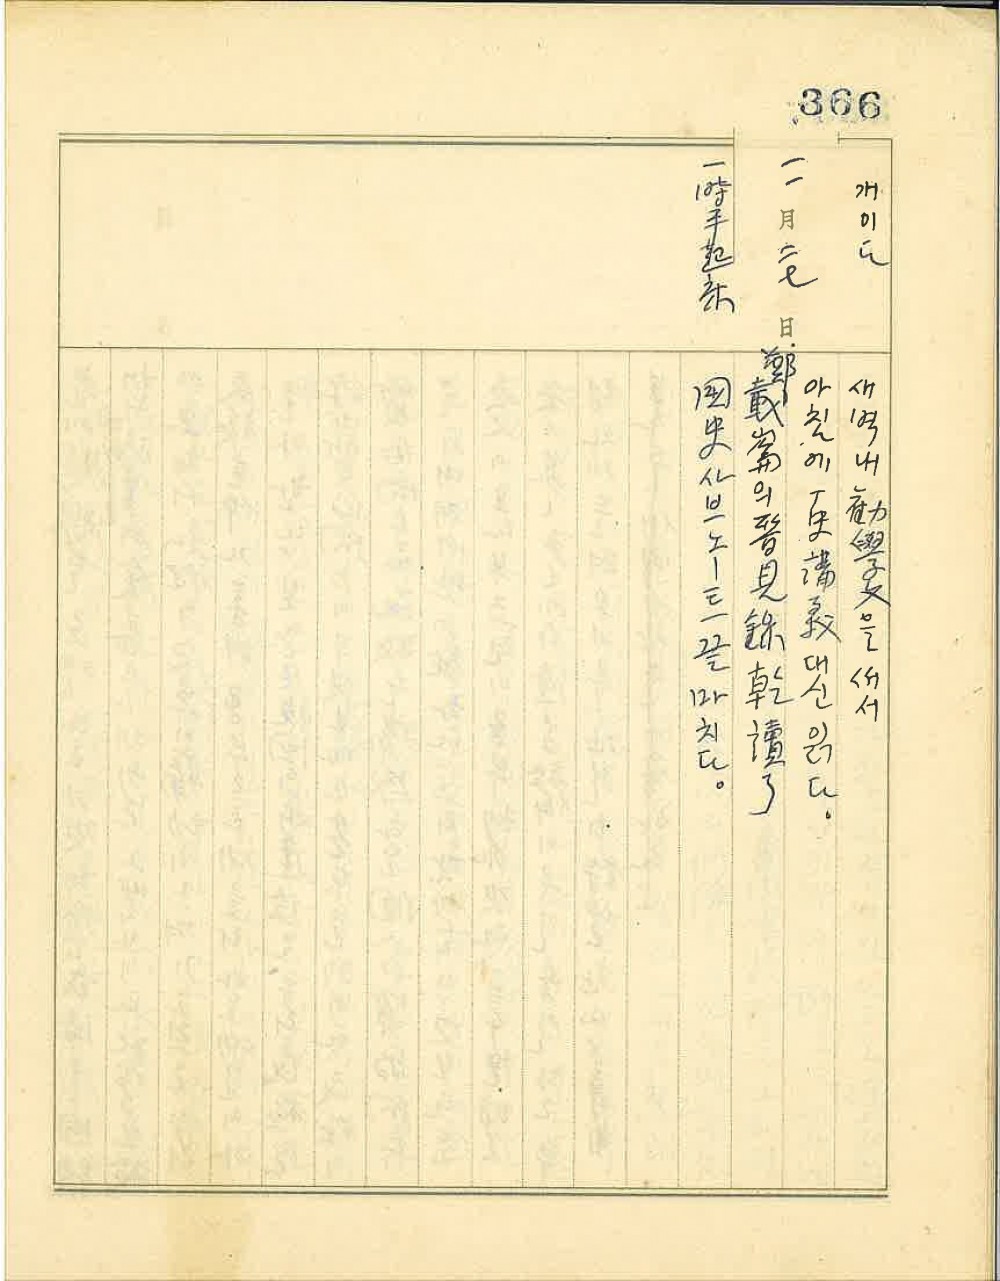 366
개이다
月二七日
一時半起床
새벽내 勸學文을 써서
아침에 史講義 대신 읽다。
鄭載崙의 見錄乾讀了
國史 사브노트 끝마치다。